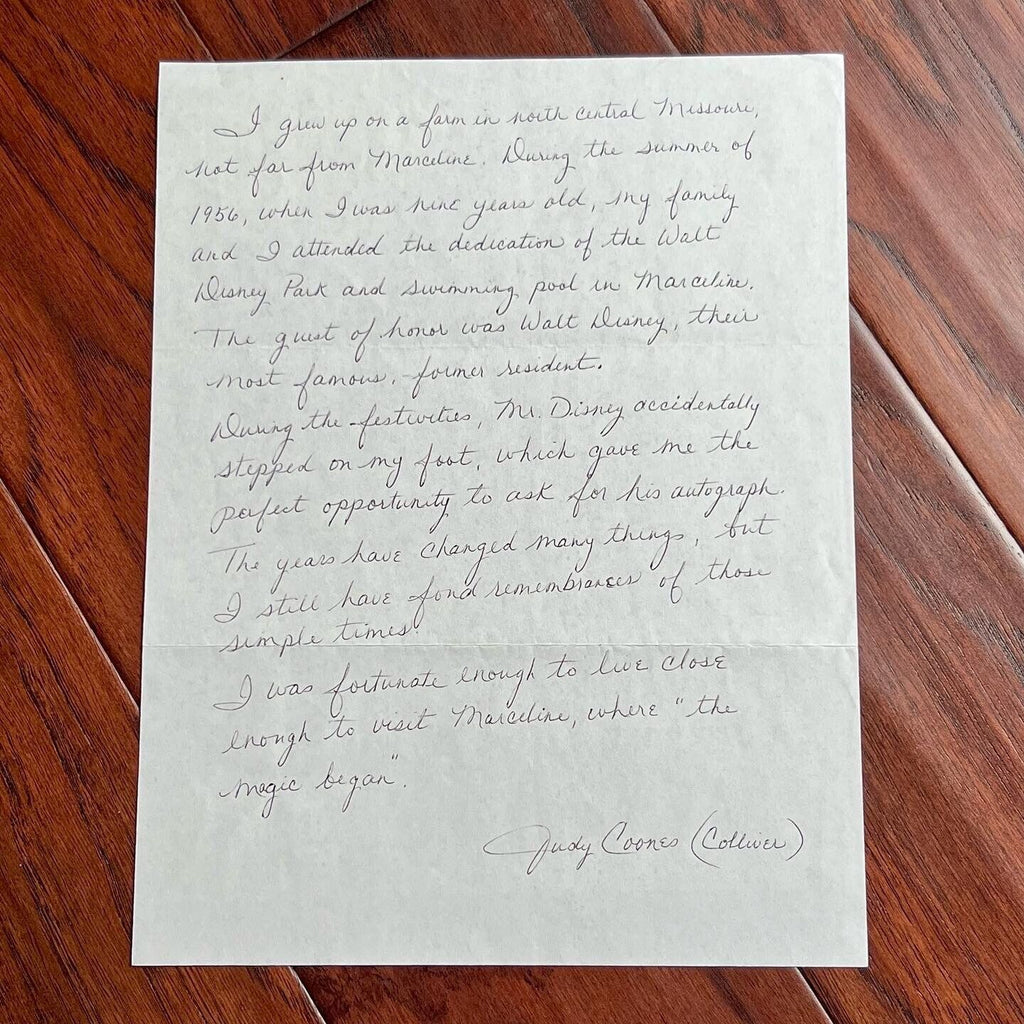 I grew up on a farm in north central Missouri,
not far from Marceline. During the summer of
1956, when I was nine years old, my family
and I attended the dedication of the Walt
Disney Park and swimming pool in Marceline.
The guest of honor was Walt Disney, their
most famous, former resident.
During the festivities, Mr. Disney accidentally
stepped on my foot, which gave me the
perfect opportunity to ask for his autograph.
The years have changed many things, but
I still have fond remembrances of those
simple times.
I was fortunate enough to live close
enough to visit Marceline, where "the
magic began".
Judy Coones (Colliver)